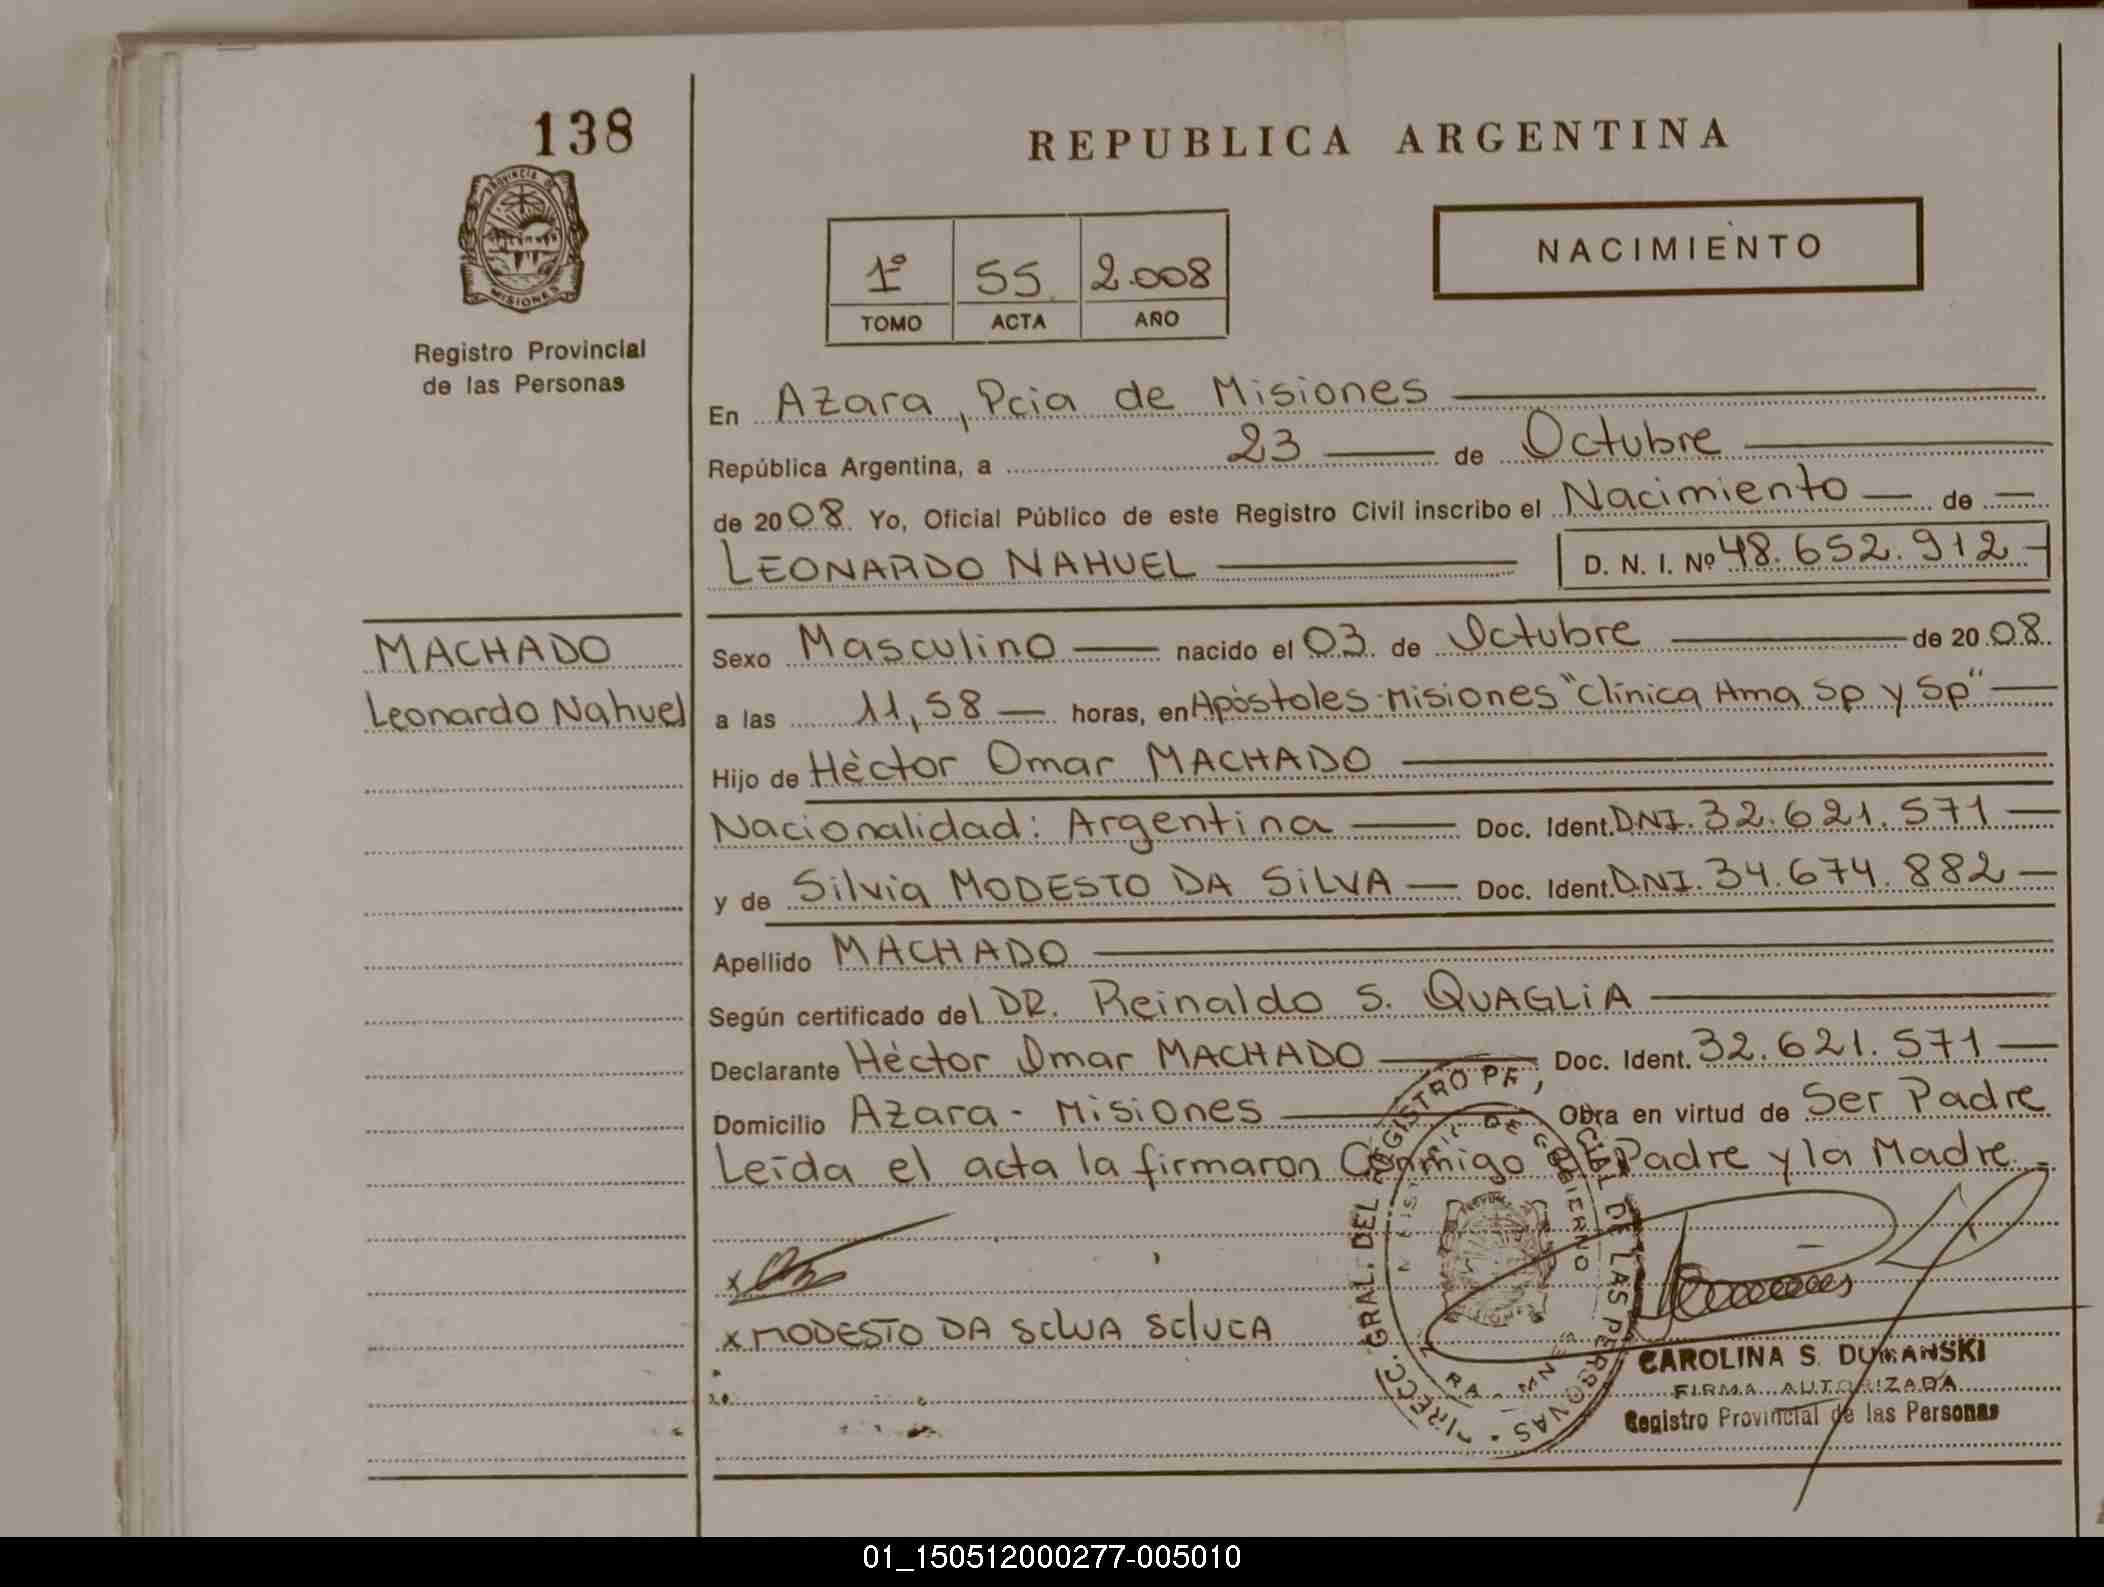 138
REPUBLICA ARGENTINA
PROVINCIA DE
MISIONES
Registro Provincial
de las Personas
NACIMIENTO
1º 55 2.008
TOMO ACTA AÑO
En Azara, Pcia de Misiones
República Argentina, a 23 de Octubre
de 2008 Yo, Oficial Público de este Registro Civil inscribo el Nacimiento de
LEONARDO NAHUEL D. N. I. Nº 48.652.912
MACHADO
Leonardo Nahuel
Sexo Masculino nacido el 03 de Octubre de 2008
a las 11,58 horas, en Apóstoles-Misiones "Clínica Hma Sp y Sp"
Hijo de Héctor Omar MACHADO
Nacionalidad: Argentina Doc. Ident. DNI. 32.621.571
y de Silvia MODESTO DA SiLVA Doc. Ident. DNI. 34.674.882
Apellido MACHADO
Según certificado del DR. Reinaldo S. QUAGLiA
Declarante Héctor Omar MACHADO Doc. Ident. 32.621.571
Domicilio Azara - Misiones Obra en virtud de Ser Padre
Leída el acta la firmaron Conmigo el Padre y la Madre.
x
x MODESTO DA
GRAL. DEL REGISTRO DE LAS PERSONAS
DE GOBIERNO
CAROLINA S. DUMANSKI
FIRMA AUTORIZADA
Registro Provincial de las Personas
01_150512000277-005010